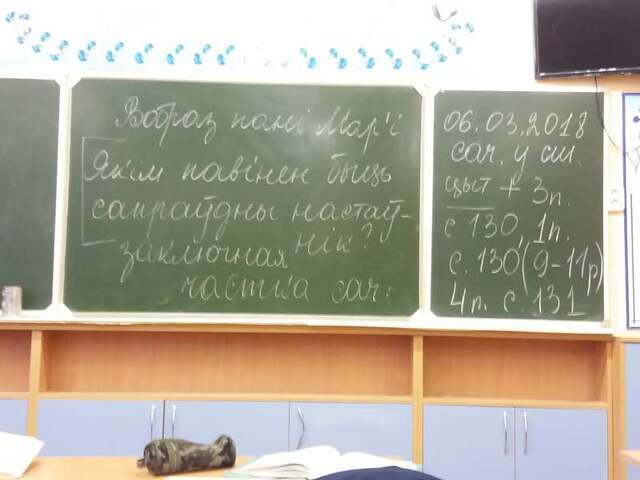 Вобраз пані Мар'і
Якім павінен быць
сапраўдны настаў-
нік?
заключная
частка сач:
06.03.2018
сач. у сш.
цыт + 3п.
с 130, 1п.
с. 130 (9-11р)
4п. с. 131